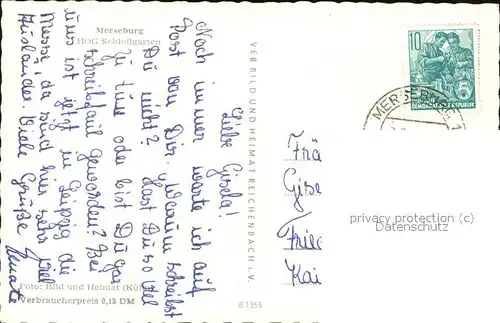 Merseburg
HOG Schloßgarten
Liebe Gisela!
Noch immer warte ich auf
Post von Dir. Warum schreibst
Du nicht? Hast Du so viel
zu tun oder bist Du gar
schreibfaul geworden? Bei
uns ist jetzt in Leipzig die
Messe, da sind hier sehr viel
Ausländer. Viele Grüße
Renate
Foto: Bild und Heimat
Verbraucherpreis 0,15 DM
VEB BILD UND HEIMAT REICHENBACH i. V.
B 1355
10
5
DEUTSCHE DEMOKRATISCHE REPUBLIK
MERSEBURG 1
Frä
Gise
Frie
Kai
privacy protection (c)
Datenschutz